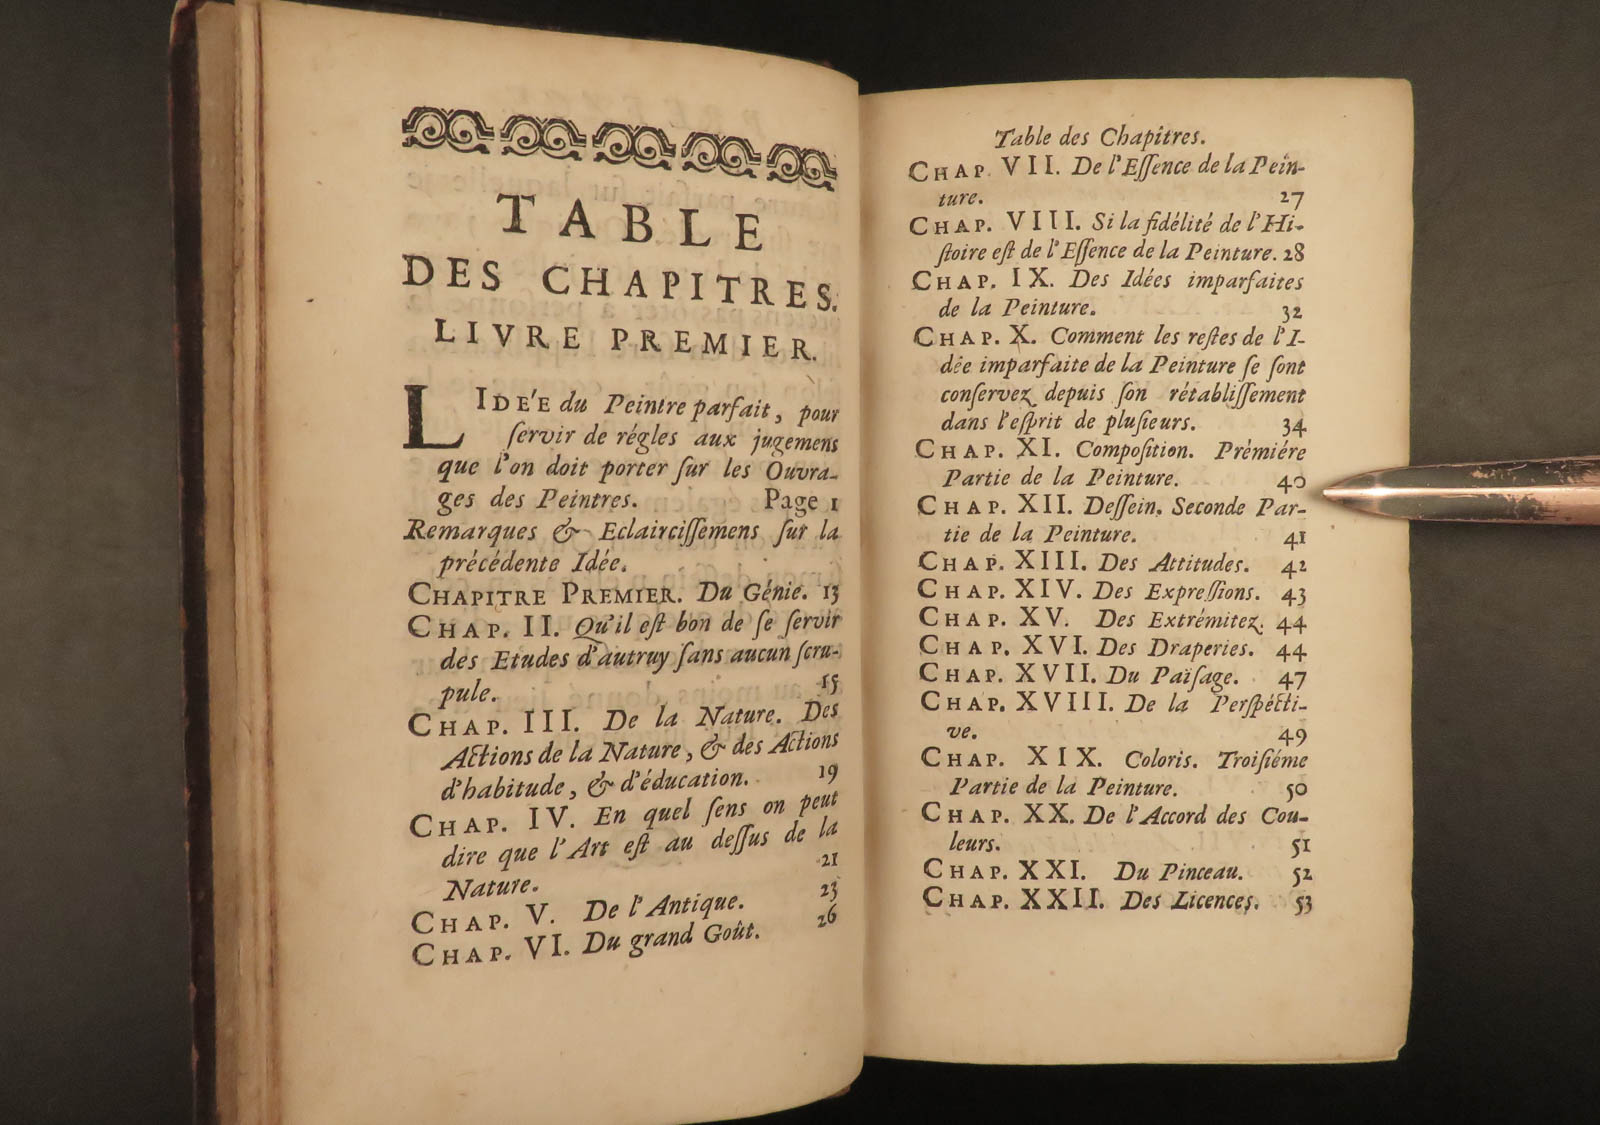 TABLE
DES CHAPITRES.
LIVRE PREMIER.
L IDE'E du Peintre parfait, pour
ſervir de régles aux jugemens
que l'on doit porter ſur les Ouvra-
ges des Peintres. Page 1
Remarques & Eclairciſſemens ſur la
précédente Idée.
CHAPITRE PREMIER. Du Génie. 13
CHAP. II. Qu'il eſt bon de ſe ſervir
des Etudes d'autruy ſans aucun ſcru-
pule. 15
CHAP. III. De la Nature. Des
Actions de la Nature, & des Actions
d'habitude, & d'éducation. 19
CHAP. IV. En quel ſens on peut
dire que l'Art eſt au deſſus de la
Nature. 21
CHAP. V. De l'Antique. 23
CHAP. VI. Du grand Goût. 26
Table des Chapîtres.
CHAP. VII. De l'Eſſence de la Pein-
ture. 27
CHAP. VIII. Si la fidélité de l'Hi-
ſtoire eſt de l'Eſſence de la Peinture. 28
CHAP. IX. Des Idées imparfaites
de la Peinture. 32
CHAP. X. Comment les reſtes de l'I-
dée imparfaite de la Peinture ſe ſont
conſervez depuis ſon rétabliſſement
dans l'eſprit de pluſieurs. 34
CHAP. XI. Compoſition. Prémiére
Partie de la Peinture. 40
CHAP. XII. Deſſein, Seconde Par-
tie de la Peinture. 41
CHAP. XIII. Des Attitudes. 42
CHAP. XIV. Des Expreſſions. 43
CHAP. XV. Des Extrémitez. 44
CHAP. XVI. Des Draperies. 44
CHAP. XVII. Du Païſage. 47
CHAP. XVIII. De la Perſpécti-
ve. 49
CHAP. XIX. Coloris. Troiſiéme
Partie de la Peinture. 50
CHAP. XX. De l'Accord des Cou-
leurs. 51
CHAP. XXI. Du Pinceau. 52
CHAP. XXII. Des Licences. 53